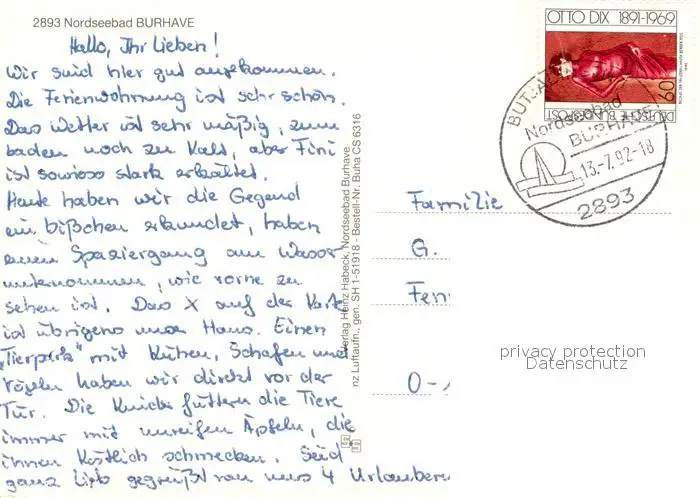 2893 Nordseebad BURHAVE
Hallo, Ihr Lieben!
Wir sind hier gut angekommen.
Die Ferienwohnung ist sehr schön.
Das Wetter ist sehr mäßig, zum
baden noch zu kalt, aber Fini
ist sowieso stark erkältet.
Heute haben wir die Gegend
ein bißchen erkundet, haben
einen Spaziergang am Wasser
unternommen, wie vorne zu
sehen ist. Das X auf der Karte
ist übrigens unser Haus. Einen
"Tierpark" mit Kühen, Schafen und
Vögeln haben wir direkt vor der
Tür. Die Kinder füttern die Tiere
immer mit unreifen Äpfeln, die
ihnen köstlich schmecken. Seid
ganz lieb gegrüßt von uns 4 Urlaubern
Verlag Heinz Habeck, Nordseebad Burhave
nz Luftaufn., gen. SH 1-51918 - Bestell-Nr. Buha CS 6316
OTTO DIX 1891-1969
60
DEUTSCHE BUNDESPOST
Nordseebad
BURHAVE
13.-7.92-18
2893
Familie
G.
Fen
O-
privacy protection
Datenschutz